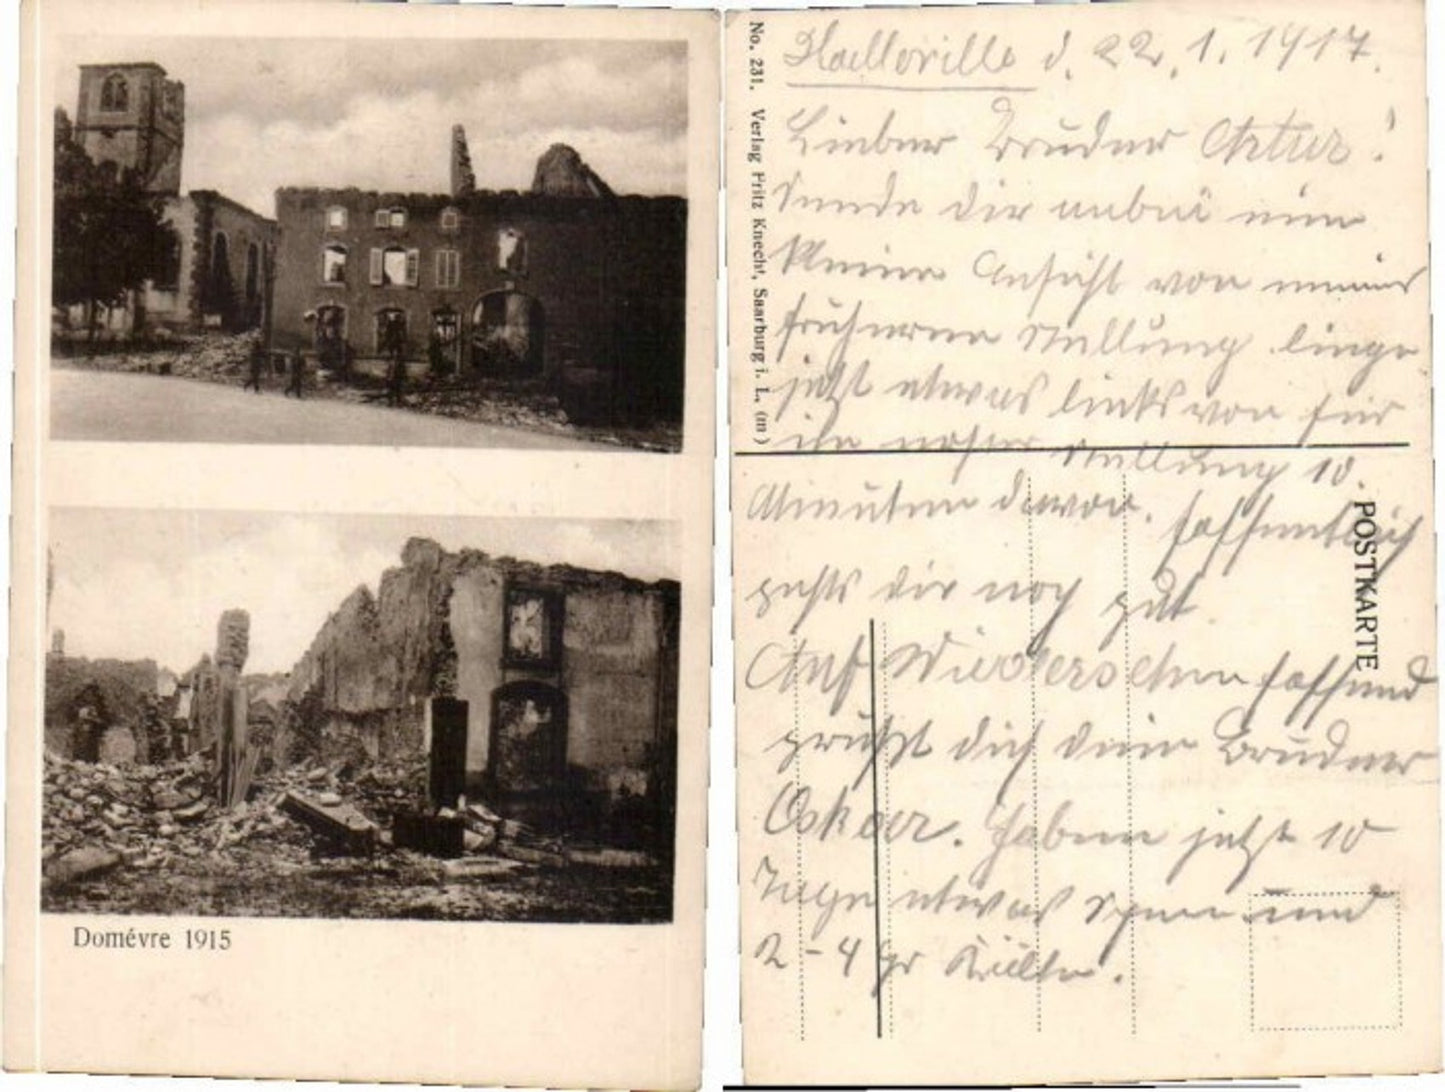 Domévre 1915
No. 231. Verlag Fritz Knecht, Saarburg i. L. (m)
POSTKARTE
Halloville d. 22.1.1917.
Lieber Bruder Artur!
Sende dir anbei eine
kleine Ansicht von meiner
früheren Stellung liege
jetzt etwas links von hir
Stellung 10.
Minuten davon. hoffentlich
gehts dir noch gut
Auf Wiedersehen hoffend
grüßt dich dein Bruder
Oskar. Haben jetzt 10
Tage etwas Schnee und
2-4 gr Kälte.